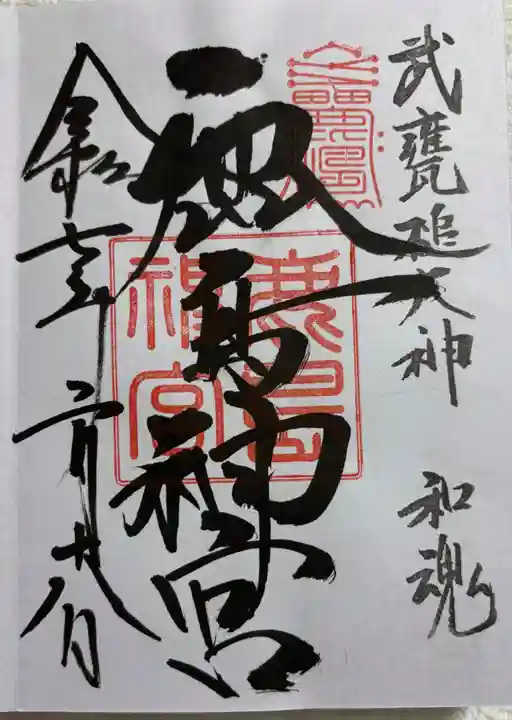 武甕槌大神 和魂
鹿島神宮
鹿島
神宮
令和七年二月廿八日